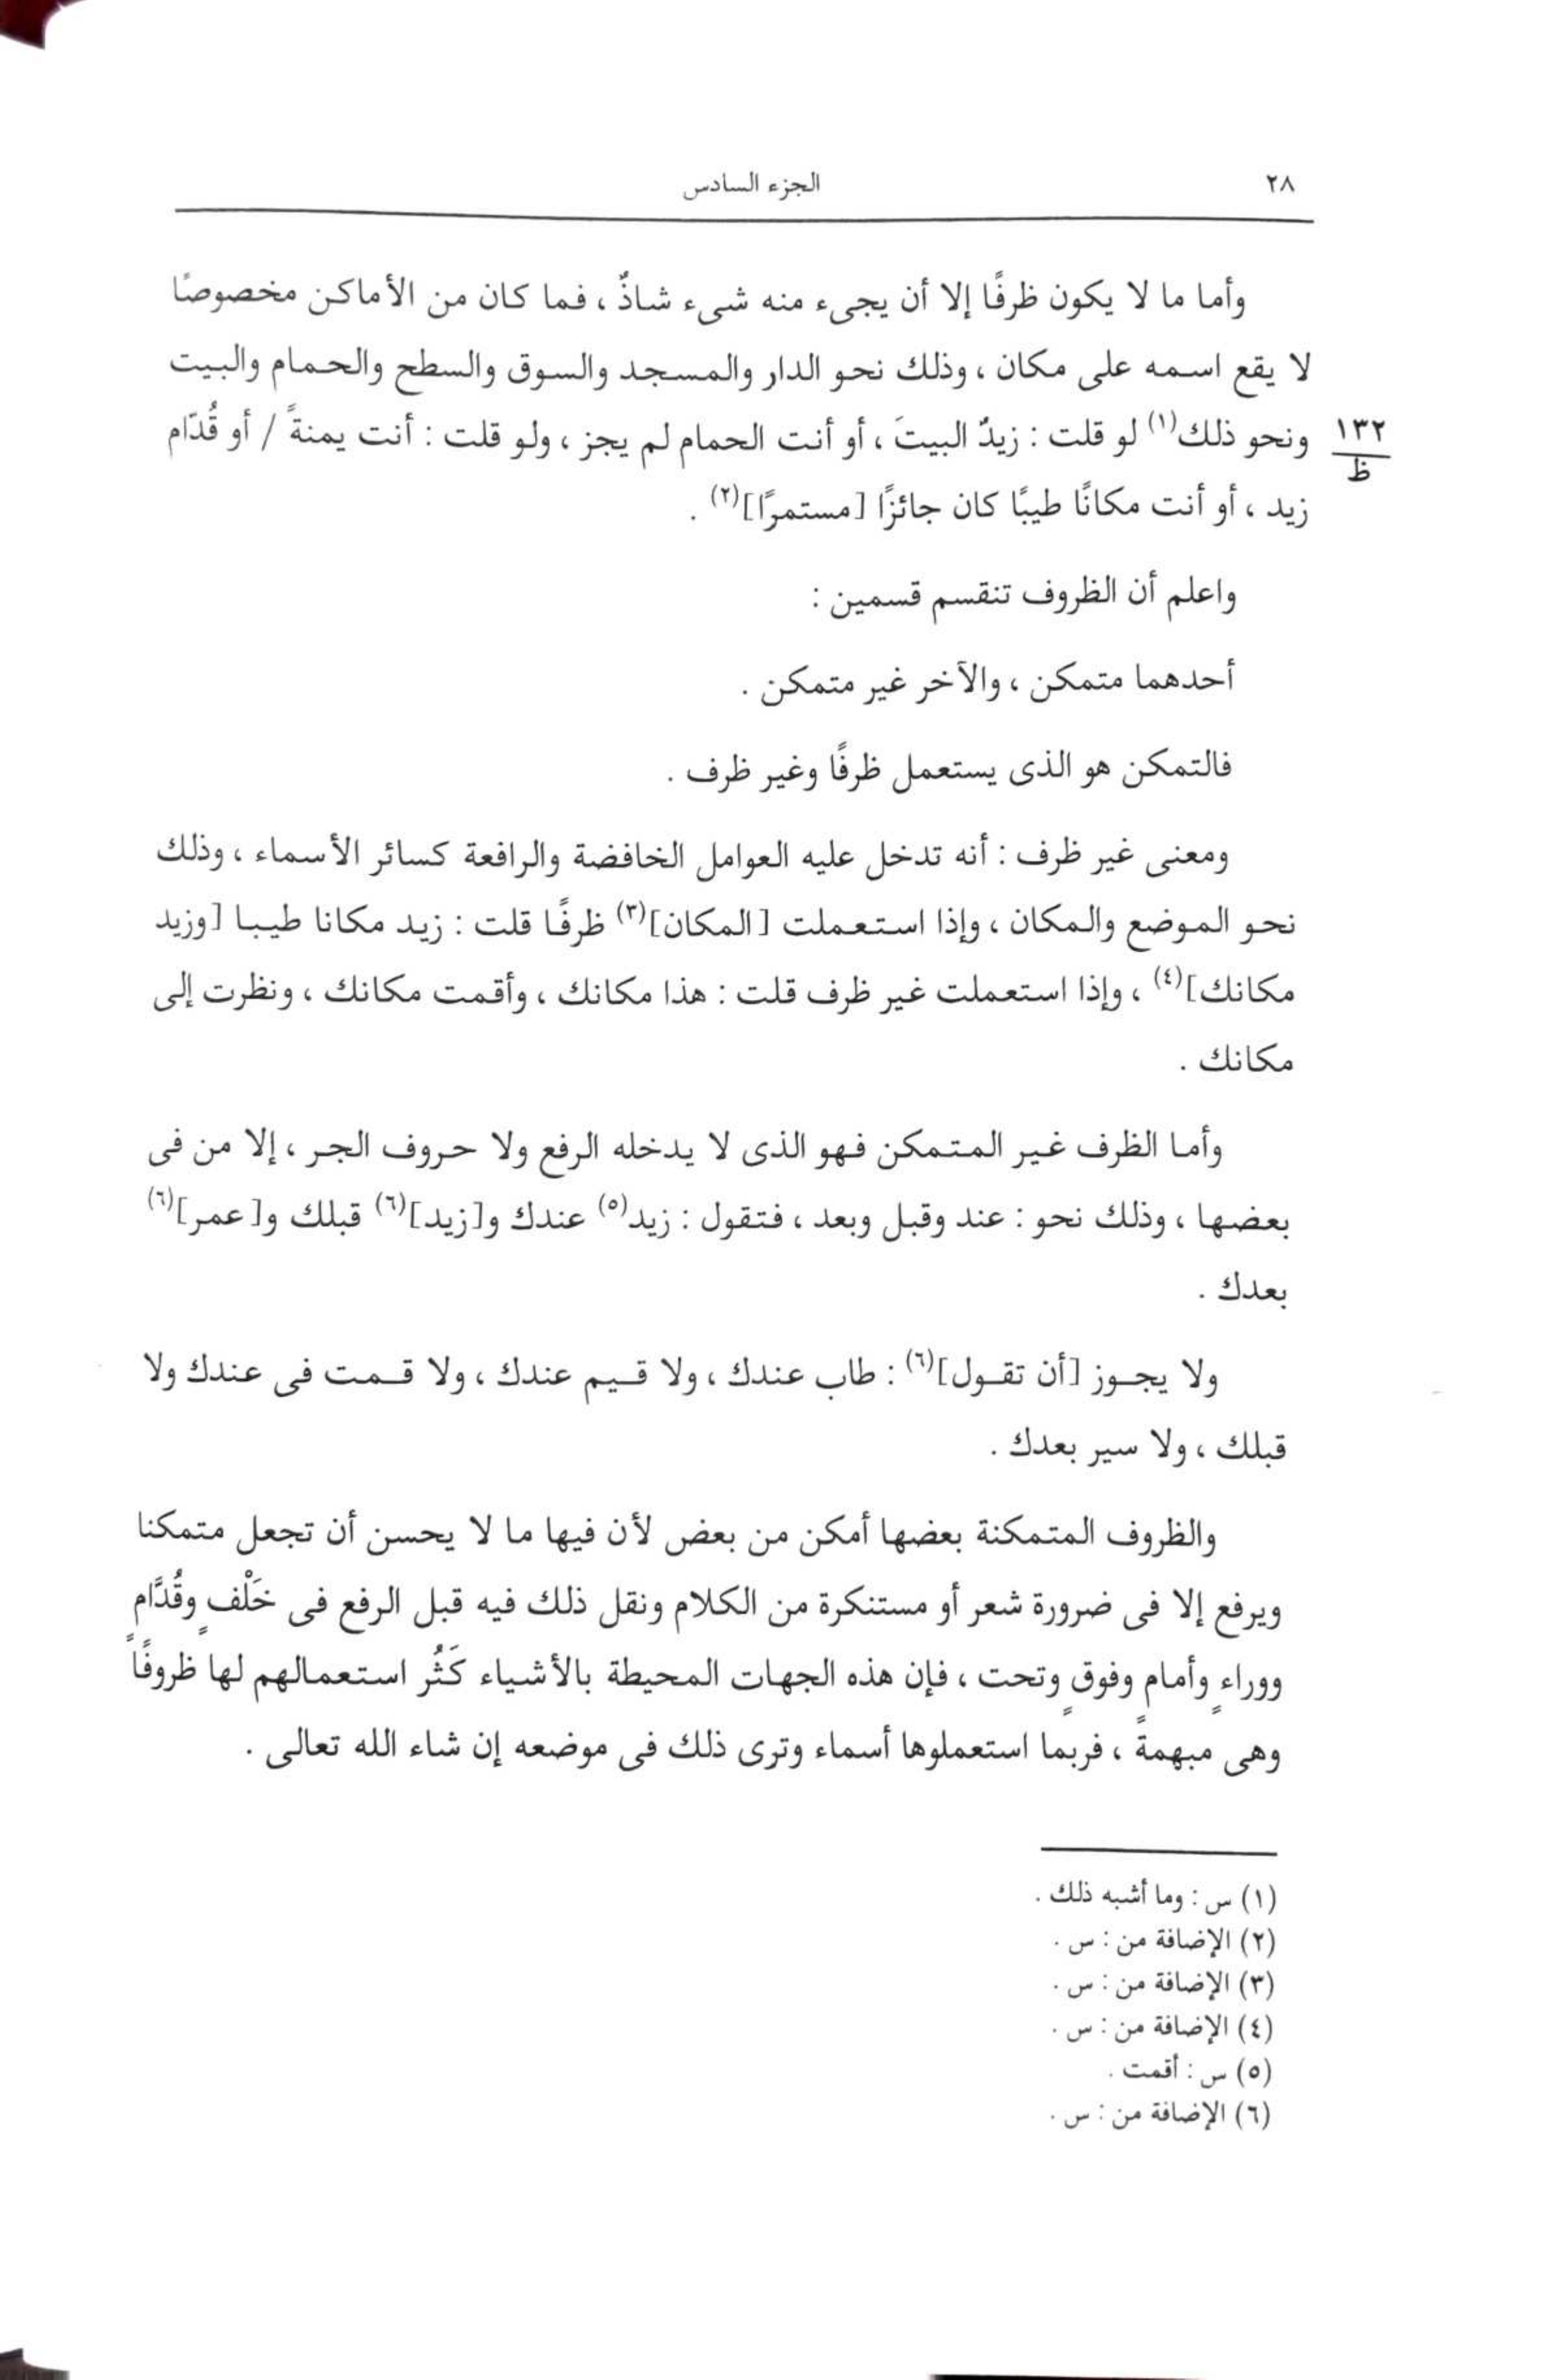 ٢٨
الجزء السادس
وأما ما لا يكون ظرفًا إلا أن يجىء منه شىء شاذٌ ، فما كان من الأماكن مخصوصًا
لا يقع اسمه على مكان ، وذلك نحو الدار والمسجد والسوق والسطح والحمام والبيت
ونحو ذلك(١) لو قلت : زيدٌ البيتَ ، أو أنت الحمام لم يجز ، ولو قلت : أنت يمنةً / أو قُدّام
١٣٢
ظ
زيد ، أو أنت مكانًا طيبًا كان جائزًا [مستمرًا](٢) .
واعلم أن الظروف تنقسم قسمين :
أحدهما متمكن ، والآخر غير متمكن .
فالتمكن هو الذى يستعمل ظرفًا وغير ظرف .
ومعنى غير ظرف : أنه تدخل عليه العوامل الخافضة والرافعة كسائر الأسماء ، وذلك
نحو الموضع والمكان ، وإذا استعملت [المكان](٣) ظرفًا قلت : زيد مكانا طيبا [وزيد
مكانك](٤) ، وإذا استعملت غير ظرف قلت : هذا مكانك ، وأقمت مكانك ، ونظرت إلى
مكانك .
وأما الظرف غير المتمكن فهو الذى لا يدخله الرفع ولا حروف الجر ، إلا من فى
بعضها ، وذلك نحو : عند وقبل وبعد ، فتقول : زيد(٥) عندك و[زيد](٦) قبلك و[عمر](٦)
بعدك .
ولا يجوز [أن تقول](٦) : طاب عندك ، ولا قيم عندك ، ولا قمت فى عندك ولا
قبلك ، ولا سير بعدك .
والظروف المتمكنة بعضها أمكن من بعض لأن فيها ما لا يحسن أن تجعل متمكنا
ويرفع إلا فى ضرورة شعر أو مستنكرة من الكلام ونقل ذلك فيه قبل الرفع فى خَلْفٍ وقُدَّامٍ
ووراءٍ وأمام وفوقٍ وتحت ، فإن هذه الجهات المحيطة بالأشياء كَثُر استعمالهم لها ظروفًا
وهى مبهمةً ، فربما استعملوها أسماء وترى ذلك فى موضعه إن شاء الله تعالى .
(١) س : وما أشبه ذلك .
(٢) الإضافة من : س .
(٣) الإضافة من : س .
(٤) الإضافة من : س .
(٥) س : أقمت .
(٦) الإضافة من : س .